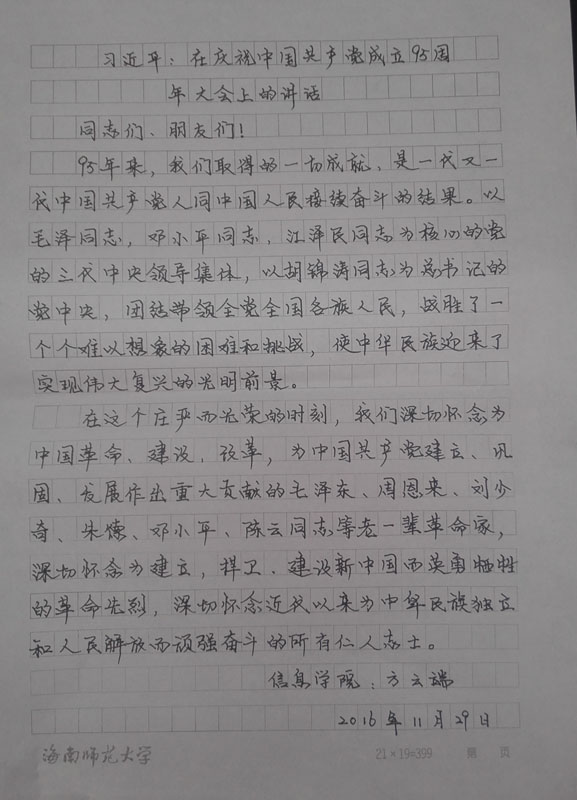 习近平：在庆祝中国共产党成立95周
年大会上的讲话
同志们、朋友们！
95年来，我们取得的一切成就，是一代又一
代中国共产党人同中国人民接续奋斗的结果。以
毛泽同志，邓小平同志，江泽民同志为核心的党
的三代中央领导集体，以胡锦涛同志为总书记的
党中央，团结带领全党全国各族人民，战胜了一
个个难以想象的困难和挑战，使中华民族迎来了
实现伟大复兴的光明前景。
在这个庄严而光荣的时刻，我们深切怀念为
中国革命、建设、改革，为中国共产党建立、巩
固、发展作出重大贡献的毛泽东、周恩来、刘少
奇、朱德、邓小平、陈云同志等老一辈革命家，
深切怀念为建立，捍卫、建设新中国而英勇牺牲
的革命先烈，深切怀念近代以来为中华民族独立
和人民解放而顽强奋斗的所有仁人志士。
信息学院：方云端
2016年11月29日
海南师范大学 21×19=399 第 页